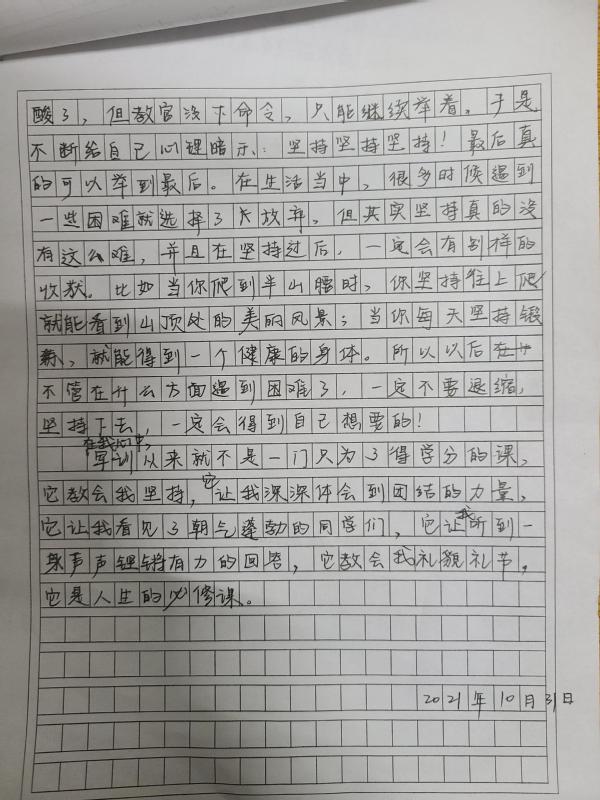 酸了，但教官没下命令，只能继续举着。于是
不断给自己心理暗示：坚持坚持坚持！最后真
的可以举到最后。在生活当中，很多时候遇到
一些困难就选择了大放弃，但其实坚持真的没
有这么难，并且在坚持过后，一定会有别样的
收获。比如当你爬到半山腰时，你坚持往上爬
就能看到山顶处的美丽风景；当你每天坚持锻
练，就能得到一个健康的身体。所以以后
不管在什么方面遇到困难了，一定不要退缩，
坚持下去，一定会得到自己想要的！
在我心中，
军训从来就不是一门只为了得学分的课，
它教会我坚持，它让我深深体会到团结的力量，
它让我看见了朝气蓬勃的同学们，它让我听到一
声声铿锵有力的回答，它教会我礼貌礼节，
它是人生的必修课。
2021年10月31日